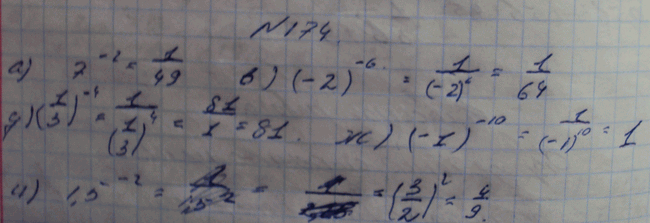 №174.
а) 7^-2 = 1/49 в) (-2)^-6 = 1/(-2)^6 = 1/64
д) (1/3)^-4 = 1/(1/3)^4 = 81/1 = 81. ж) (-1)^-10 = 1/(-1)^10 = 1
и) 1,5^-2 = = = (3/2)^2 = 4/9.